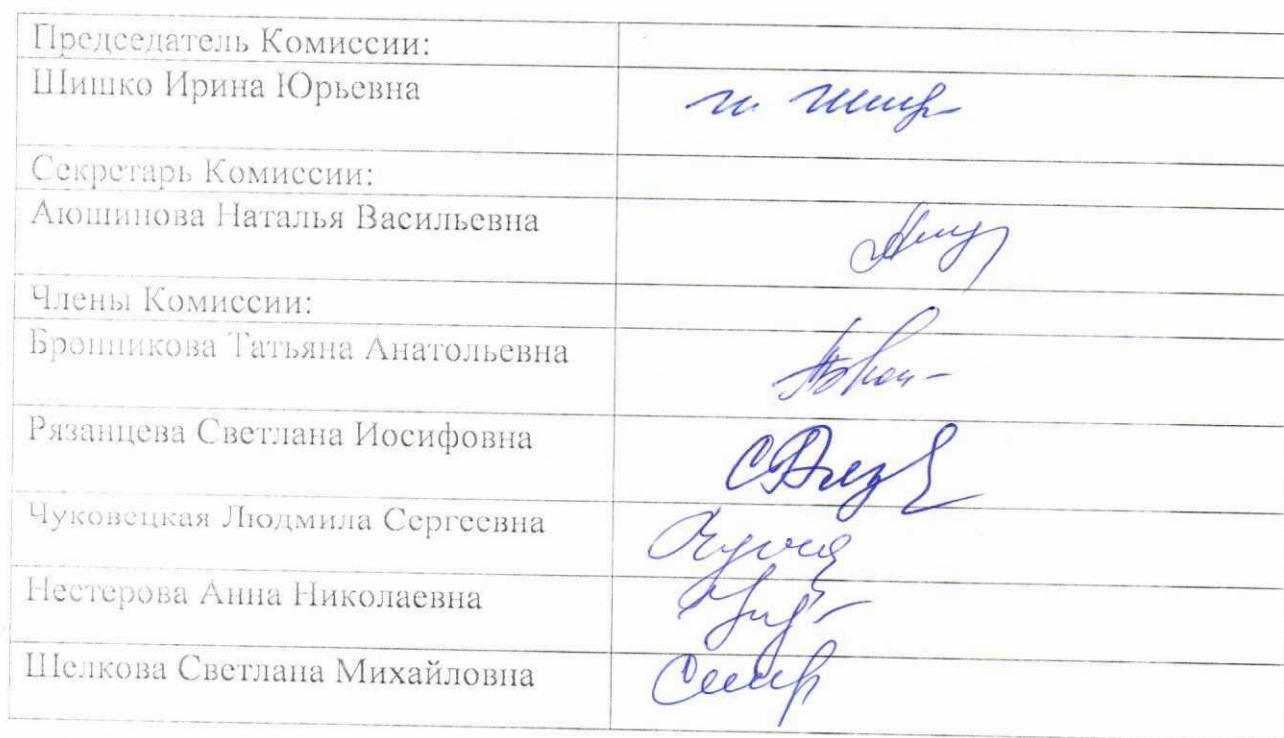 Председатель Комиссии:
Шишко Ирина Юрьевна
Секретарь Комиссии:
Аюшинова Наталья Васильевна
Члены Комиссии:
Бронникова Татьяна Анатольевна
Рязанцева Светлана Иосифовна
Чуковецкая Людмила Сергеевна
Нестерова Анна Николаевна
Шелкова Светлана Михайловна